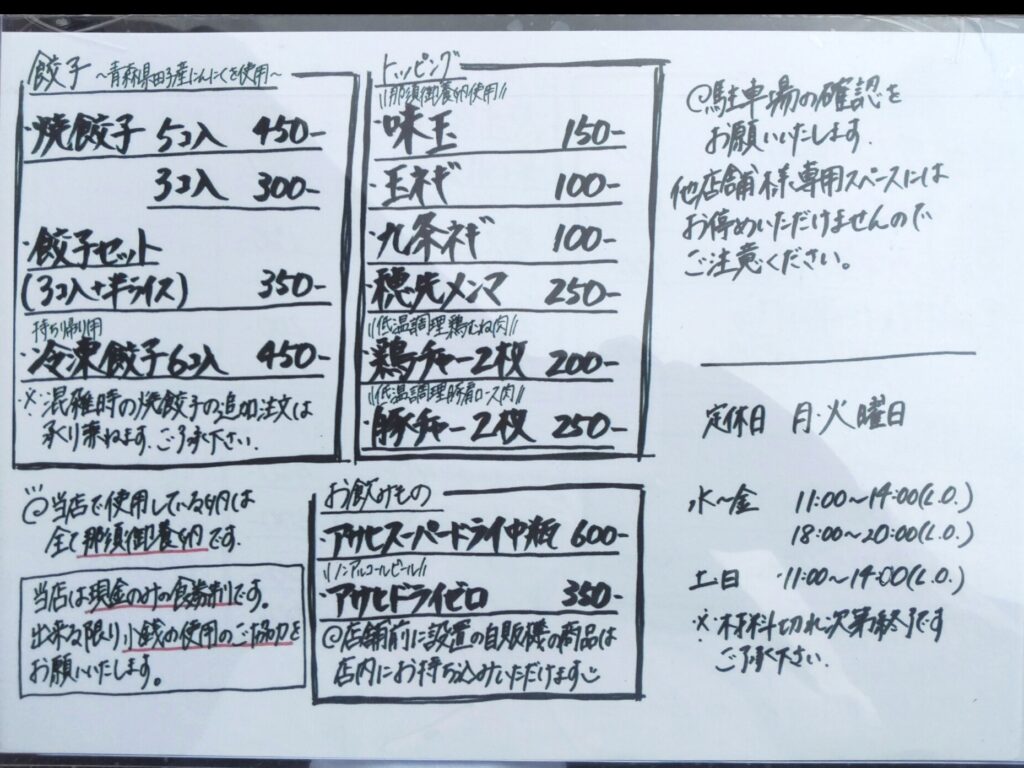 餃子 ～青森県田子産にんにくを使用～
・焼餃子 5コ入 450-
3コ入 300-
・餃子セット
(3コ入+半ライス) 350-
持ち帰り用
・冷凍餃子6コ入 450-
※混雑時の焼餃子の追加注文は
承り兼ねます。ご了承下さい。
トッピング
\\那須御養卵使用//
・味玉 150-
・玉ネギ 100-
・九条ネギ 100-
・穂先メンマ 250-
\\低温調理鶏むね肉//
・鶏チャー2枚 200-
\\低温調理豚肩ロース肉//
・豚チャー2枚 250-
@駐車場の確認を
お願いいたします。
他店舗様専用スペースには
お停めいただけませんので
ご注意ください。
定休日 月・火曜日
水～金 11:00～14:00(L.O.)
18:00～20:00(L.O.)
土日 11:00～14:00(L.O.)
※材料切れ次第終了です
ご了承下さい。
@当店で使用している卵は
全て那須御養卵です。
当店は現金のみの食券制です。
出来る限り小銭の使用のご協力を
お願いいたします。
お飲みもの
・アサヒスーパードライ中瓶 600-
\\ノンアルコールビール//
・アサヒドライゼロ 350-
@店舗前に設置の自販機の商品は
店内にお持ち込みいただけます